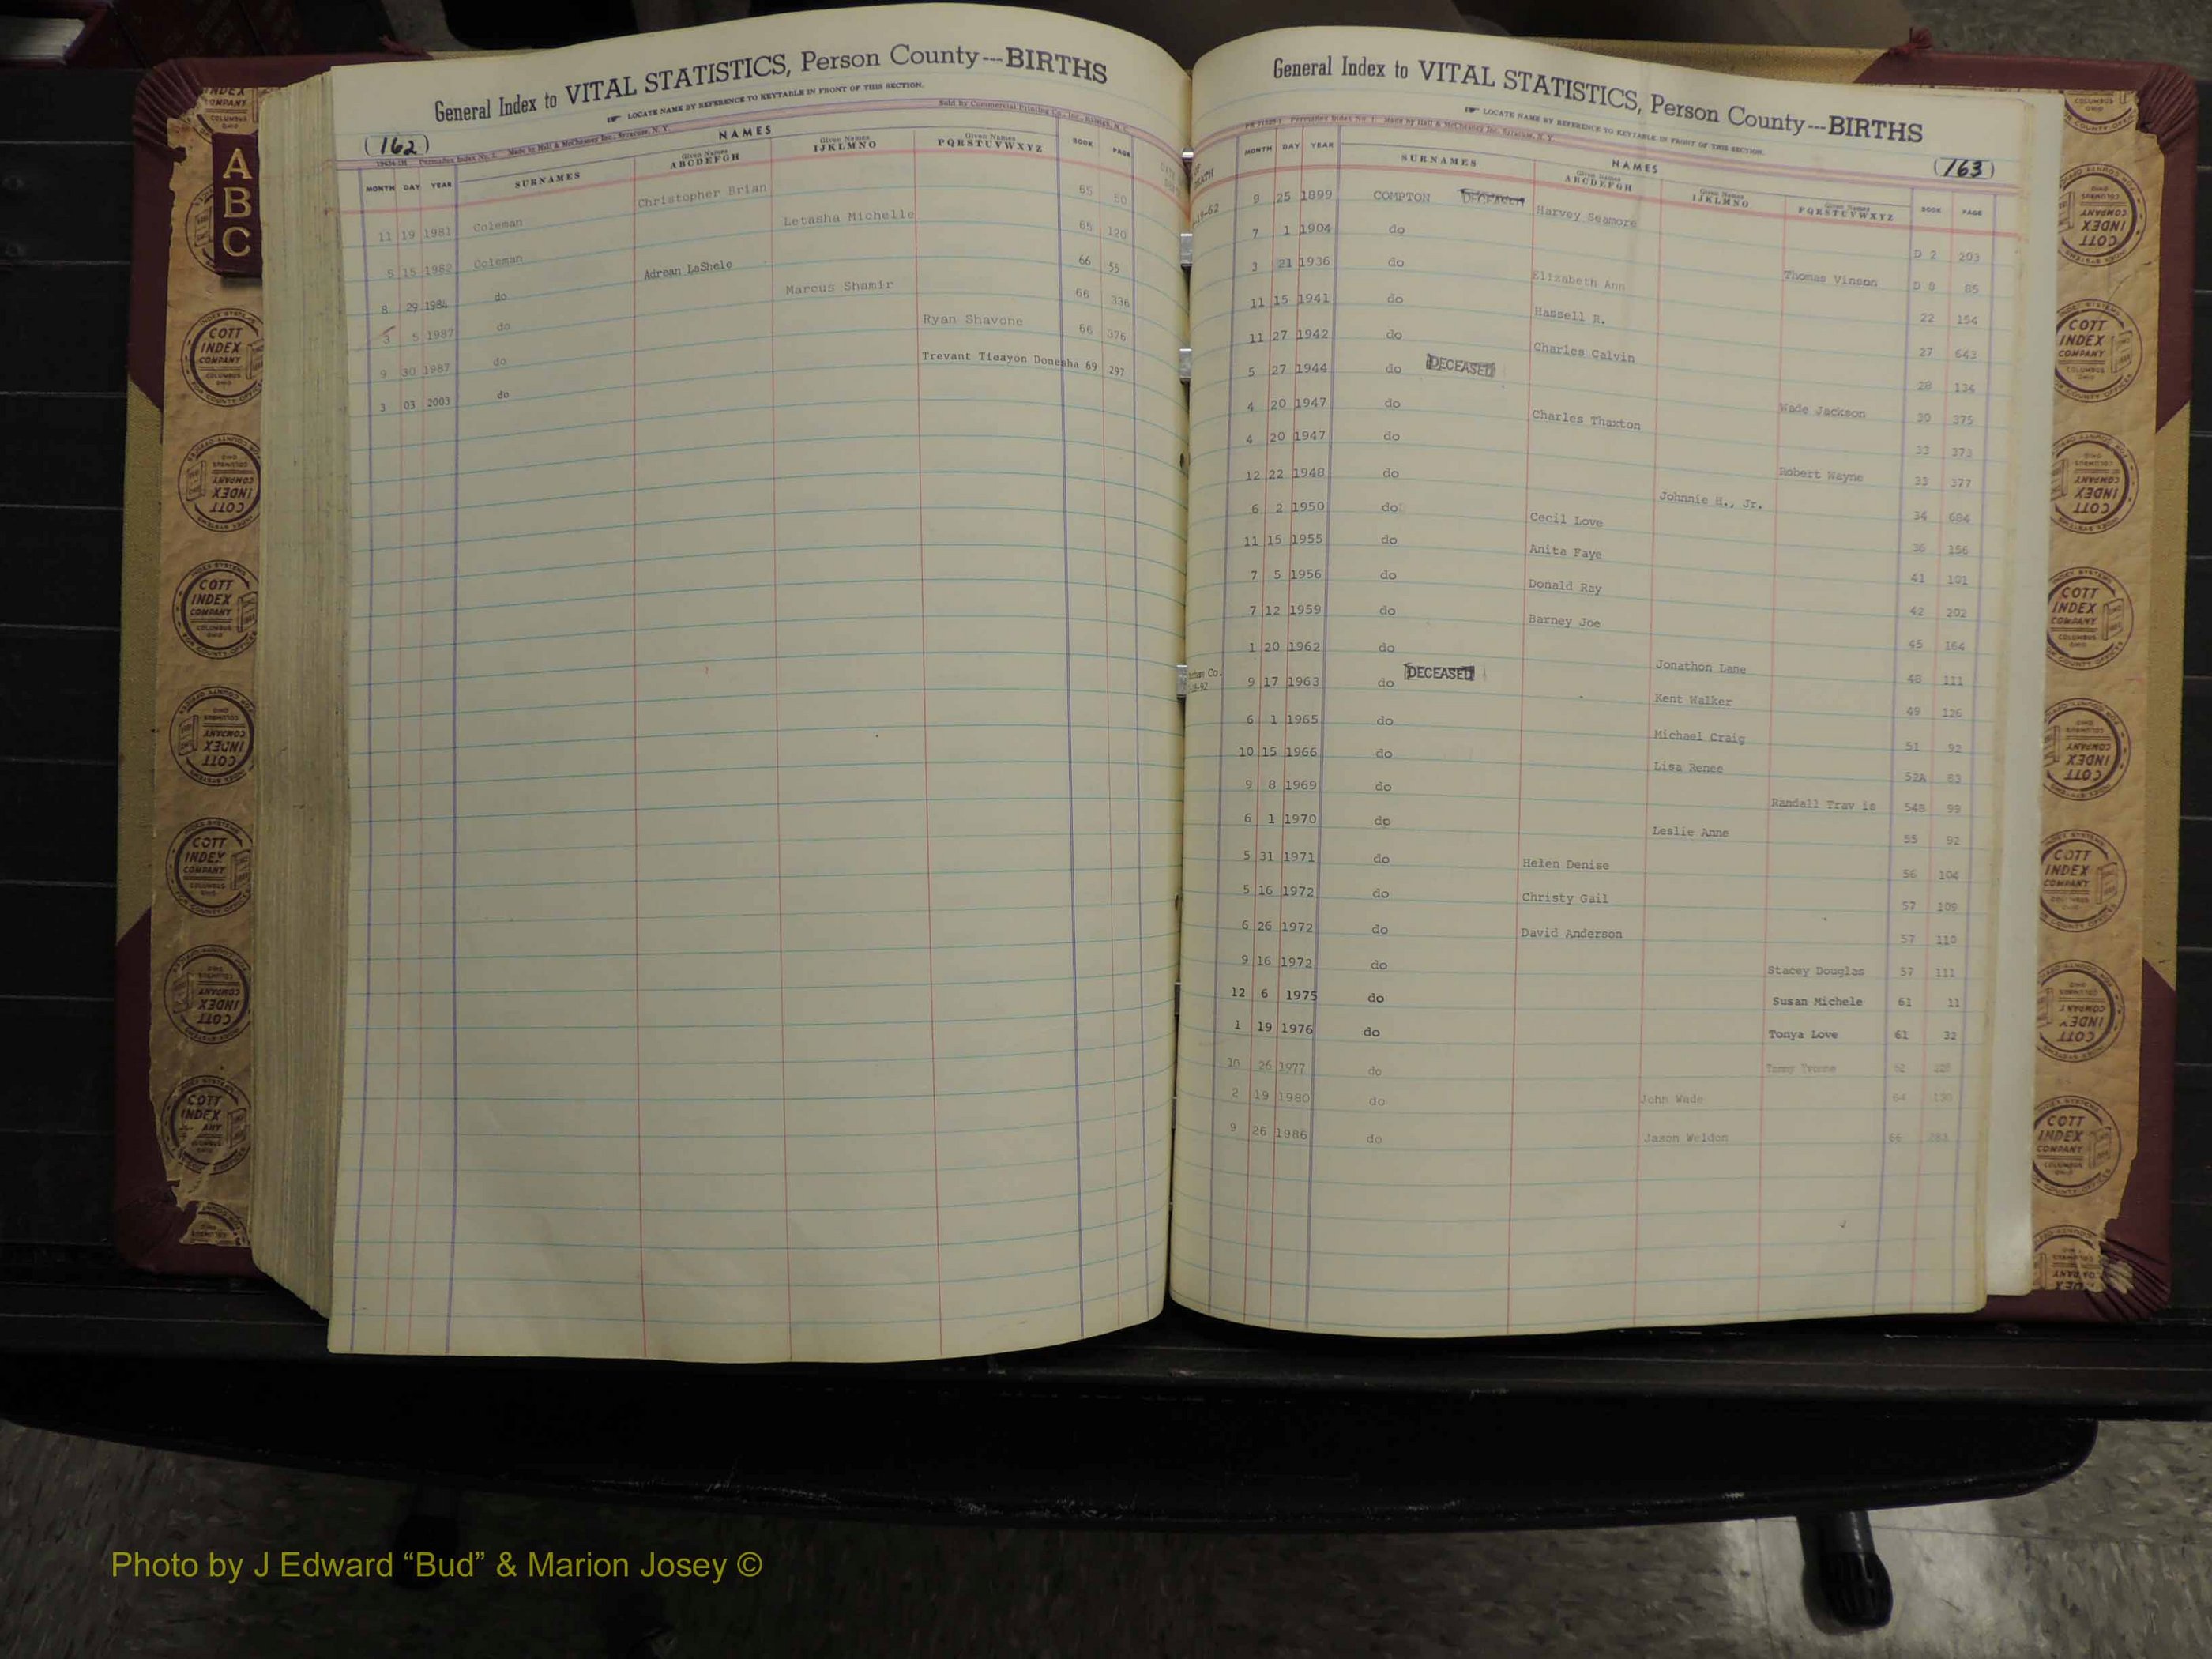 General Index to VITAL STATISTICS, Person County---BIRTHS
☞ LOCATE NAME BY REFERENCE TO KEYTABLE IN FRONT OF THIS SECTION.
(162)
Sold by Commercial Printing Co., Inc., Raleigh, N. C.
Permadex Index No. 1. Made by Hall & McChesney Inc., Syracuse, N. Y.
NAMES
MONTH DAY YEAR SURNAMES Given Names ABCDEFGH Given Names IJKLMNO Given Names PQRSTUVWXYZ BOOK PAGE
11 19 1981 Coleman Christopher Brian 65 50
5 15 1982 Coleman Letasha Michelle 65 120
8 29 1984 do Adrean LaShele 66 55
3 5 1987 do Marcus Shamir 66 336
9 30 1987 do Ryan Shavone 66 376
3 03 2003 do Trevant Tieayon Donesha 69 297
General Index to VITAL STATISTICS, Person County---BIRTHS
☞ LOCATE NAME BY REFERENCE TO KEYTABLE IN FRONT OF THIS SECTION.
Permadex Index No. 1. Made by Hall & McChesney Inc., Syracuse, N. Y.
(163)
NAMES
MONTH DAY YEAR SURNAMES Given Names ABCDEFGH Given Names IJKLMNO Given Names PQRSTUVWXYZ BOOK PAGE
9 25 1899 COMPTON DECEASED Harvey Seamore D 2 203
7 1 1904 do Thomas Vinson D 8 85
3 21 1936 do Elizabeth Ann 22 154
11 15 1941 do Hassell R. 27 643
11 27 1942 do Charles Calvin 28 134
5 27 1944 do DECEASED Wade Jackson 30 375
4 20 1947 do Charles Thaxton 33 373
4 20 1947 do Robert Wayne 33 377
12 22 1948 do Johnnie H., Jr. 34 684
6 2 1950 do Cecil Love 36 156
11 15 1955 do Anita Faye 41 101
7 5 1956 do Donald Ray 42 202
7 12 1959 do Barney Joe 45 164
1 20 1962 do Jonathon Lane 48 111
9 17 1963 do DECEASED Kent Walker 49 126
6 1 1965 do Michael Craig 51 92
10 15 1966 do Lisa Renee 52A 83
9 8 1969 do Randall Trav is 54B 99
6 1 1970 do Leslie Anne 55 92
5 31 1971 do Helen Denise 56 104
5 16 1972 do Christy Gail 57 109
6 26 1972 do David Anderson 57 110
9 16 1972 do Stacey Douglas 57 111
12 6 1975 do Susan Michele 61 11
1 19 1976 do Tonya Love 61 32
10 26 1977 do Tammy Yvonne 62
2 19 1980 do John Wade 64 130
9 26 1986 do Jason Weldon 66 283
A
B
C
COTT
INDEX
COMPANY
COLUMBUS
OHIO
Photo by J Edward “Bud” & Marion Josey ©